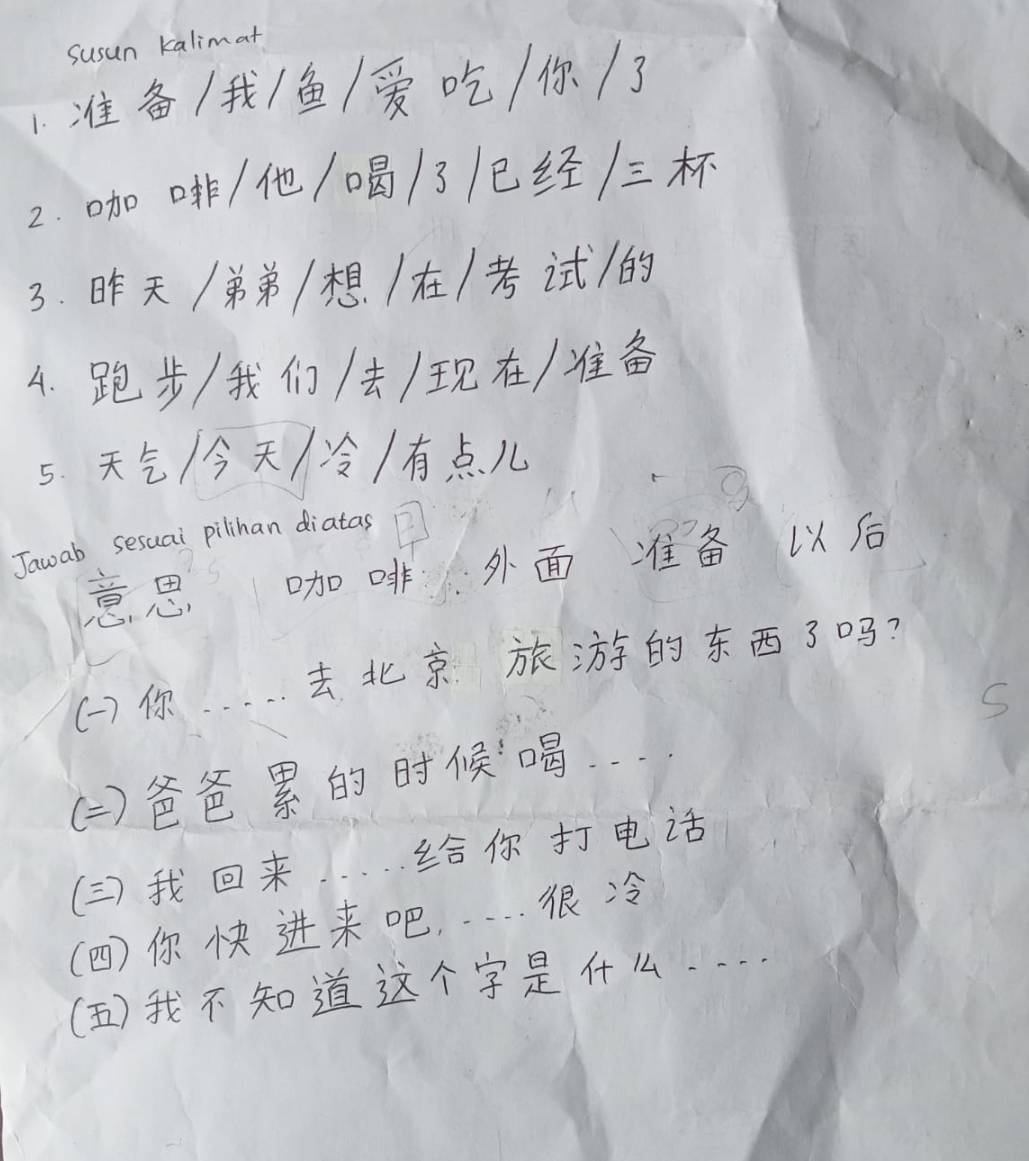 susun kalimat
1. 准备/我/鱼/爱吃/你/了
2. 咖啡/他/喝/了/已经/三杯
3. 昨天/弟弟/想/在/考试/的
4. 跑步/我们/去/现在/准备
5. 天气/今天/冷/有点儿
Jawab sesuai pilihan diatas
意思 咖啡 外面 准备 以后
(一) 你 ..... 去北京 旅游的东西了吗?
(二) 爸爸累的时候喝 ....
(三) 我回来 ..... 给你打电话
(四) 你快进来吧, .... 很冷
(五) 我不知道这个字是什么 ....